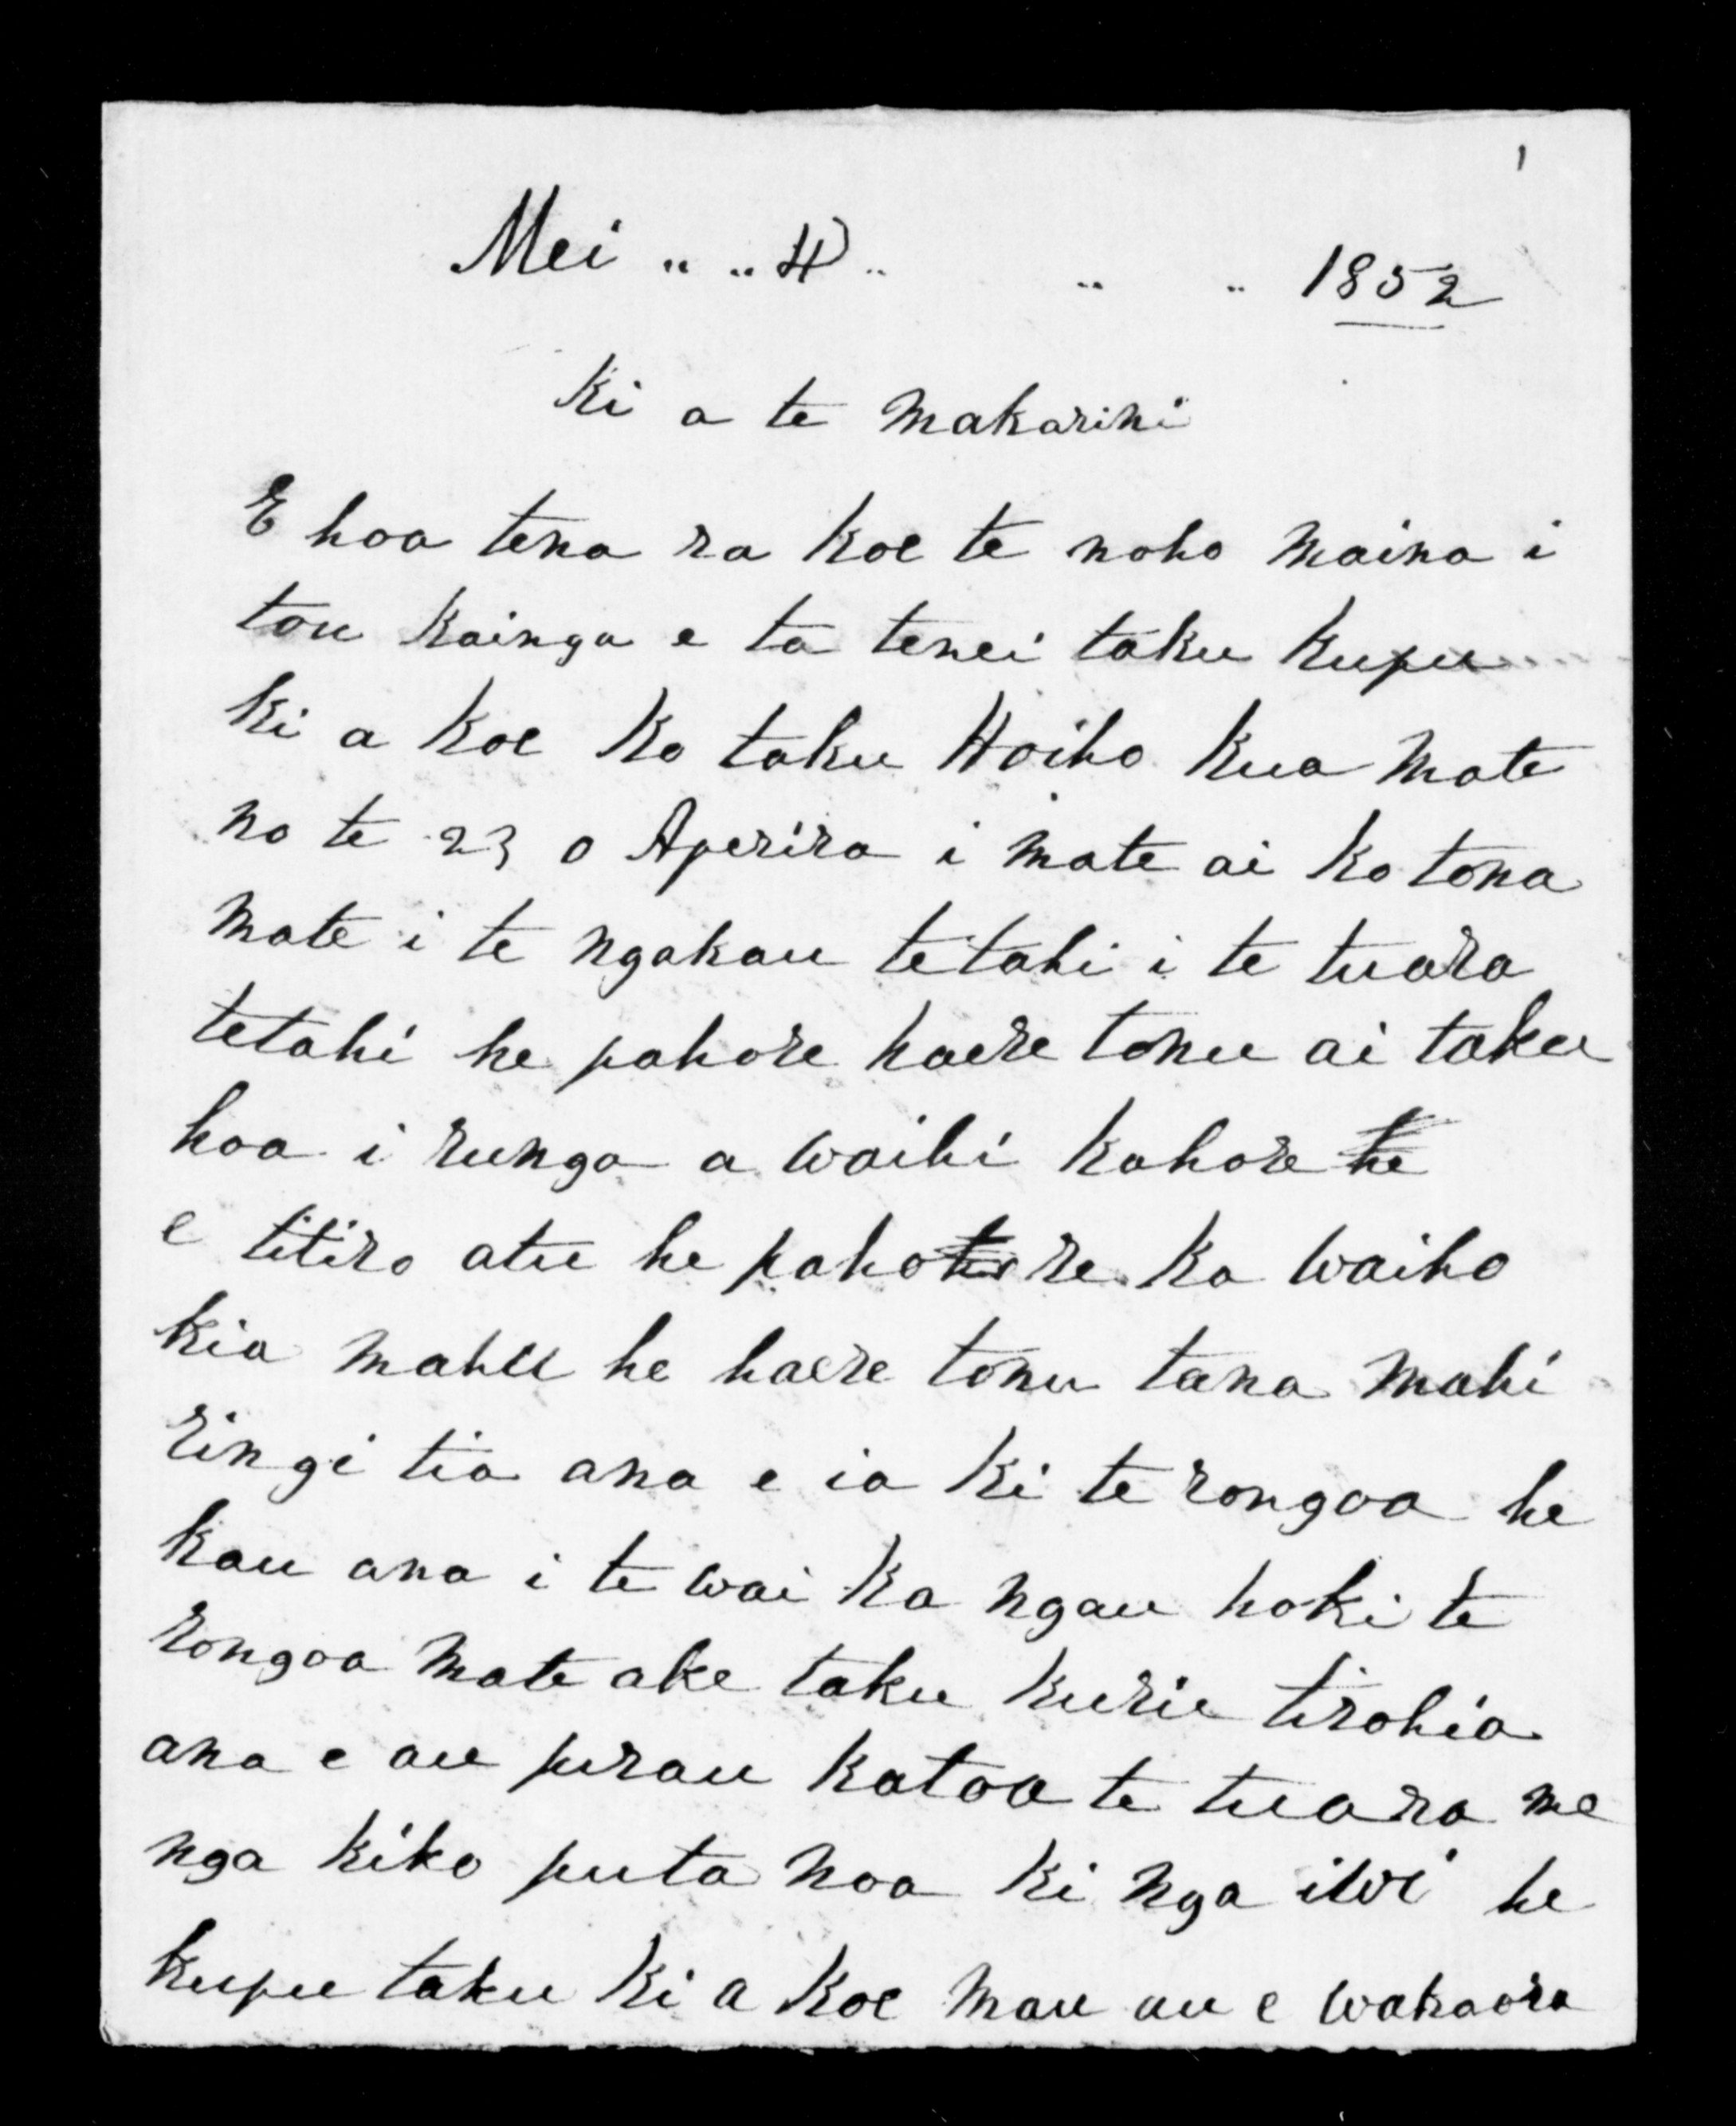 1
Mei " " 4 " " " 1852
Ki a te Makarini
E hoa tena ra koe te noho maina i
tou kainga e ta tenei taku kupu
ki a koe ko taku Hoiho kua mate
no te 23 o Aperira i mate ai ko tona
mate i te ngakau tetahi i te tuara
tetahi he pahore haere tonu ai taku
hoa i runga a waihi kahore te
e titiro atu he pahotore ka waiho
kia mahu he haere tonu tana mahi
ringi tia ana e ia ki te rongoa he
kau ana i te wai ka ngau hoki te
rongoa mate ake taku kurie tirohia
ana e au pirau katoa te tuara me
nga kiko puta noa ki nga iwi he
kupu taku ki a koe mau au e wakaora